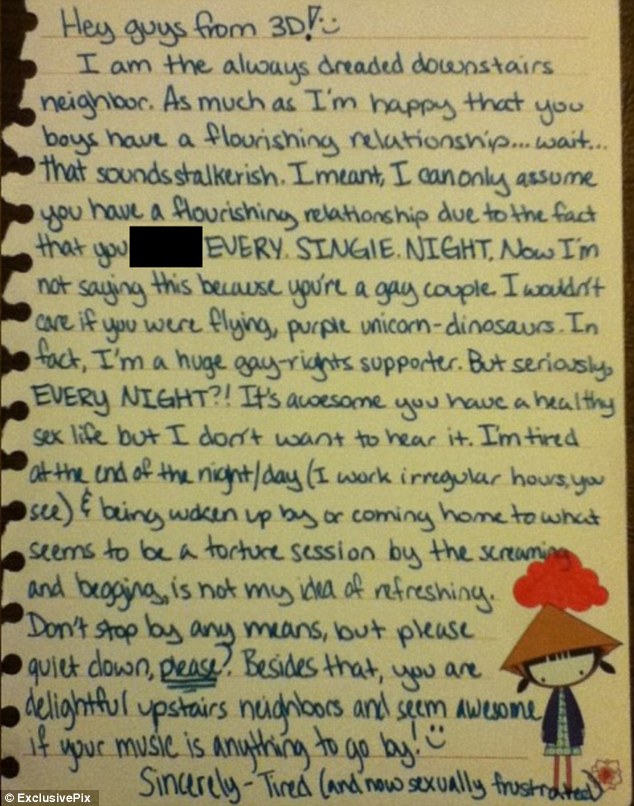 Hey guys from 3D! :)
I am the always dreaded downstairs
neighbor. As much as I'm happy that you
boys have a flourishing relationship... wait...
that sounds stalkerish. I meant, I can only assume
you have a flourishing relationship due to the fact
that you EVERY. SINGLE. NIGHT. Now I'm
not saying this because you're a gay couple. I wouldn't
care if you were flying, purple unicorn-dinosaurs. In
fact, I'm a huge gay-rights supporter. But seriously,
EVERY NIGHT?! It's awesome you have a healthy
sex life but I don't want to hear it. I'm tired
at the end of the night/day (I work irregular hours, you
see) & being woken up by or coming home to what
seems to be a torture session by the screaming
and begging, is not my idea of refreshing.
Don't stop by any means, but please
quiet down, please? Besides that, you are
delightful upstairs neighbors and seem awesome
if your music is anything to go by! :)
Sincerely - Tired (and now sexually frustrated)
© ExclusivePix